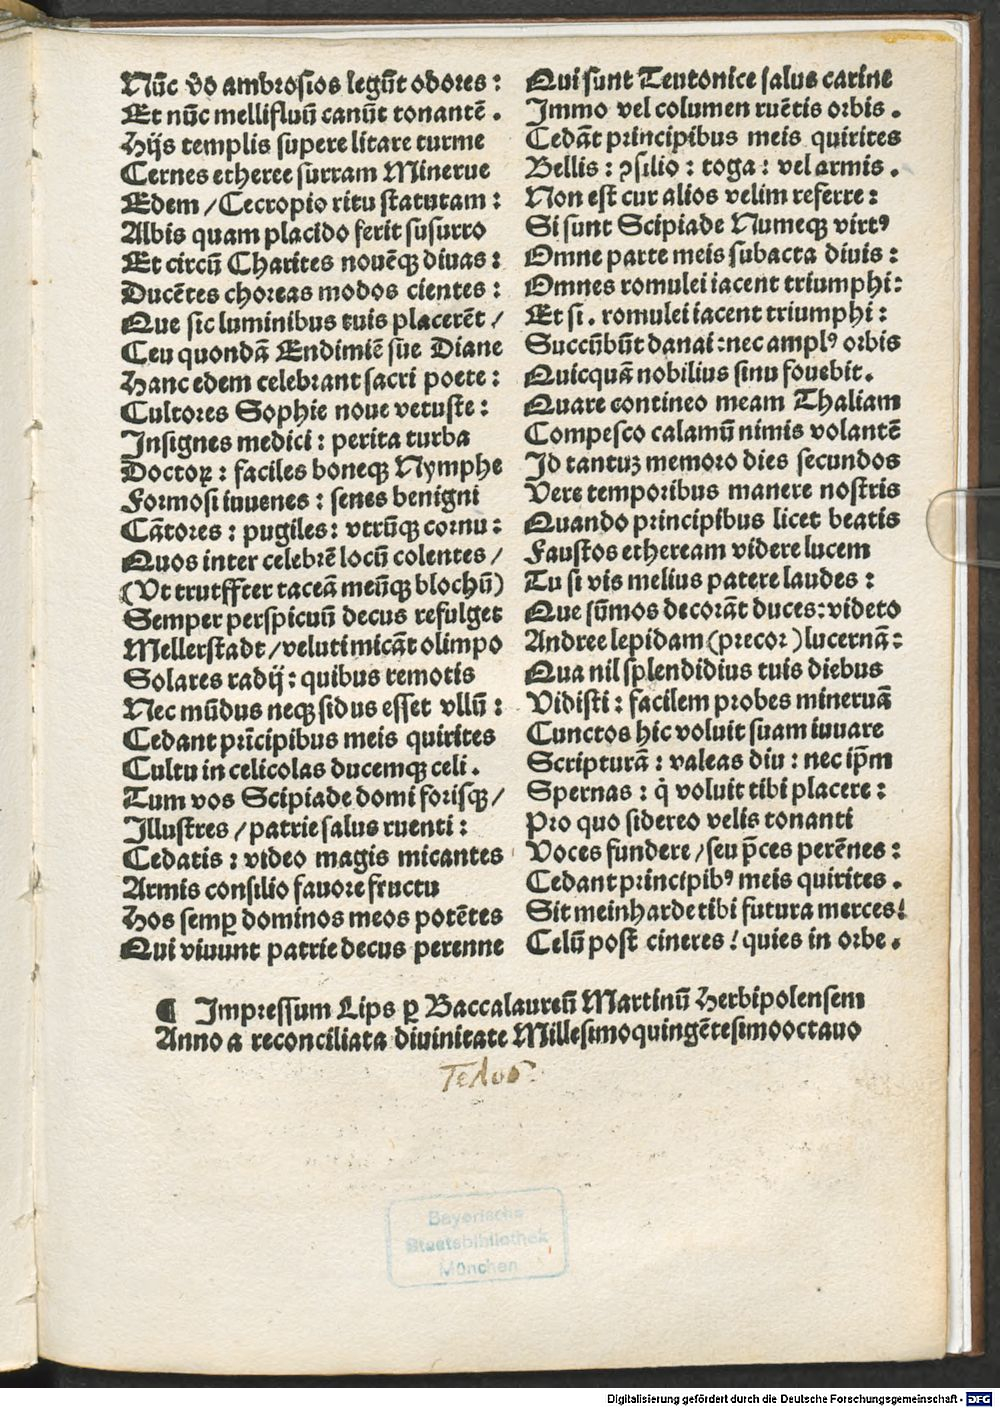 Nūc v̄o ambrosios legūt odores:
Et nūc mellifluū canūt tonantē.
Hijs templis supere litare turme
Cernes etheree surram Minerue
Edem / Cecropio ritu statutam:
Albis quam placido ferit susurro
Et circū Charites nouēqꝫ diuas:
Ducētes choreas modos cientes:
Que sic luminibus tuis placerēt /
Ceu quondā Endimiē sue Diane
Hanc edem celebrant sacri poete:
Cultores Sophie noue vetuste:
Insignes medici: perita turba
Doctoꝝ: faciles boneqꝫ Nymphe
Formosi iuuenes: senes benigni
Cātores: pugiles: vtrūqꝫ cornu:
Quos inter celebrē locū colentes /
(Vt trutffter taceā meūqꝫ blochū)
Semper perspicuū decus refulget
Mellerstadt / veluti micāt olimpo
Solares radij: quibus remotis
Nec mūdus neqꝫ sidus esset vllū:
Cedant prīcipibus meis quirites
Cultu in celicolas ducemqꝫ celi.
Tum vos Scipiade domi forisqꝫ /
Illustres / patrie salus ruenti:
Cedatis: video magis micantes
Armis consilio fauore fructu
Hos semꝑ dominos meos potētes
Qui viuunt patrie decus perenne
Qui sunt Teutonice salus carine
Immo vel columen ruētis orbis.
Cedāt principibus meis quirites
Bellis: ꝯsilio: toga: vel armis.
Non est cur alios velim referre:
Si sunt Scipiade Numeqꝫ virtꝰ
Omne parte meis subacta diuis:
Omnes romulei iacent triumphi:
Et si. romulei iacent triumphi:
Succūbūt danai: nec amplꝰ orbis
Quicquā nobilius sinu fouebit.
Quare contineo meam Thaliam
Compesco calamū nimis volantē
Id tantuꝫ memoro dies secundos
Vere temporibus manere nostris
Quando principibus licet beatis
Faustos etheream videre lucem
Tu si vis melius patere laudes:
Que sūmos decorāt duces: videto
Andree lepidam (precor) lucernā:
Qua nil splendidius tuis diebus
Vidisti: facilem probes mineruā
Cunctos hic voluit suam iuuare
Scripturā: valeas diu: nec ip̄m
Spernas: q̇ voluit tibi placere:
Pro quo sidereo velis tonanti
Voces fundere / seu p̄ces perēnes:
Cedant principibꝰ meis quirites.
Sit meinharde tibi futura merces!
Celū post cineres! quies in orbe.
¶ Impressum Lips ꝑ Baccalaureū Martinū Herbipolensem
Anno a reconciliata diuinitate Millesimoquingētesimooctauo
Τελος.
Bayerische
Staatsbibliothek
München
Digitalisierung gefördert durch die Deutsche Forschungsgemeinschaft - DFG